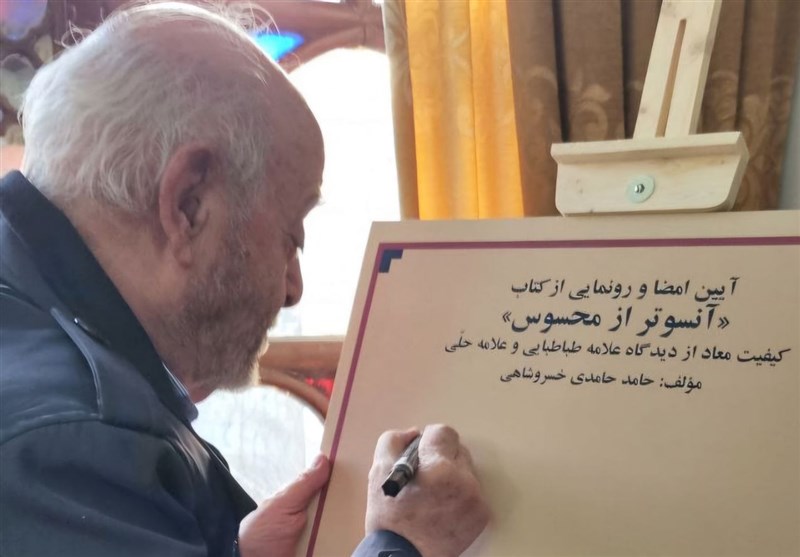 آیین امضا و رونمایی از کتاب
«آنسوتر از محسوس»
کیفیت معاد از دیدگاه علامه طباطبایی و علامه حلّی
مؤلف: حامد حامدی خسروشاهی